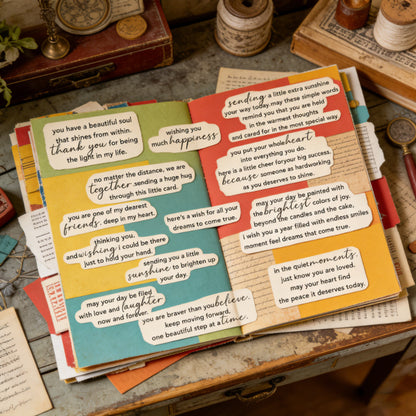 you have a beautiful soul
that shines from within.
thank you for being
the light in my life.
wishing you
much happiness
no matter the distance, we are
together. sending a huge hug
through this little card.
you are one of my dearest
friends. deep in my heart.
here's a wish for all your
dreams to come true.
thinking you.
and wishing i could be there
just to hold your hand.
sending you a little
sunshine to brighten up
your day.
may your day be filled
with love and laughter
now and forever.
you are braver than you believe.
keep moving forward.
one beautiful step at a time.
sending a little extra sunshine
your way today. may these simple words
remind you that you are held
in the warmest thoughts
and cared for in the most special way
you put your whole heart
into everything you do.
here is a little cheer for your big success,
because someone as hardworking
as you deserves to shine.
may your day be painted with
the brightest colors of joy.
beyond the candles and the cake.
i wish you a year filled with endless smiles
moment feel dreams that come true.
in the quiet moments.
just know you are loved.
may your heart find
the peace it deserves today.